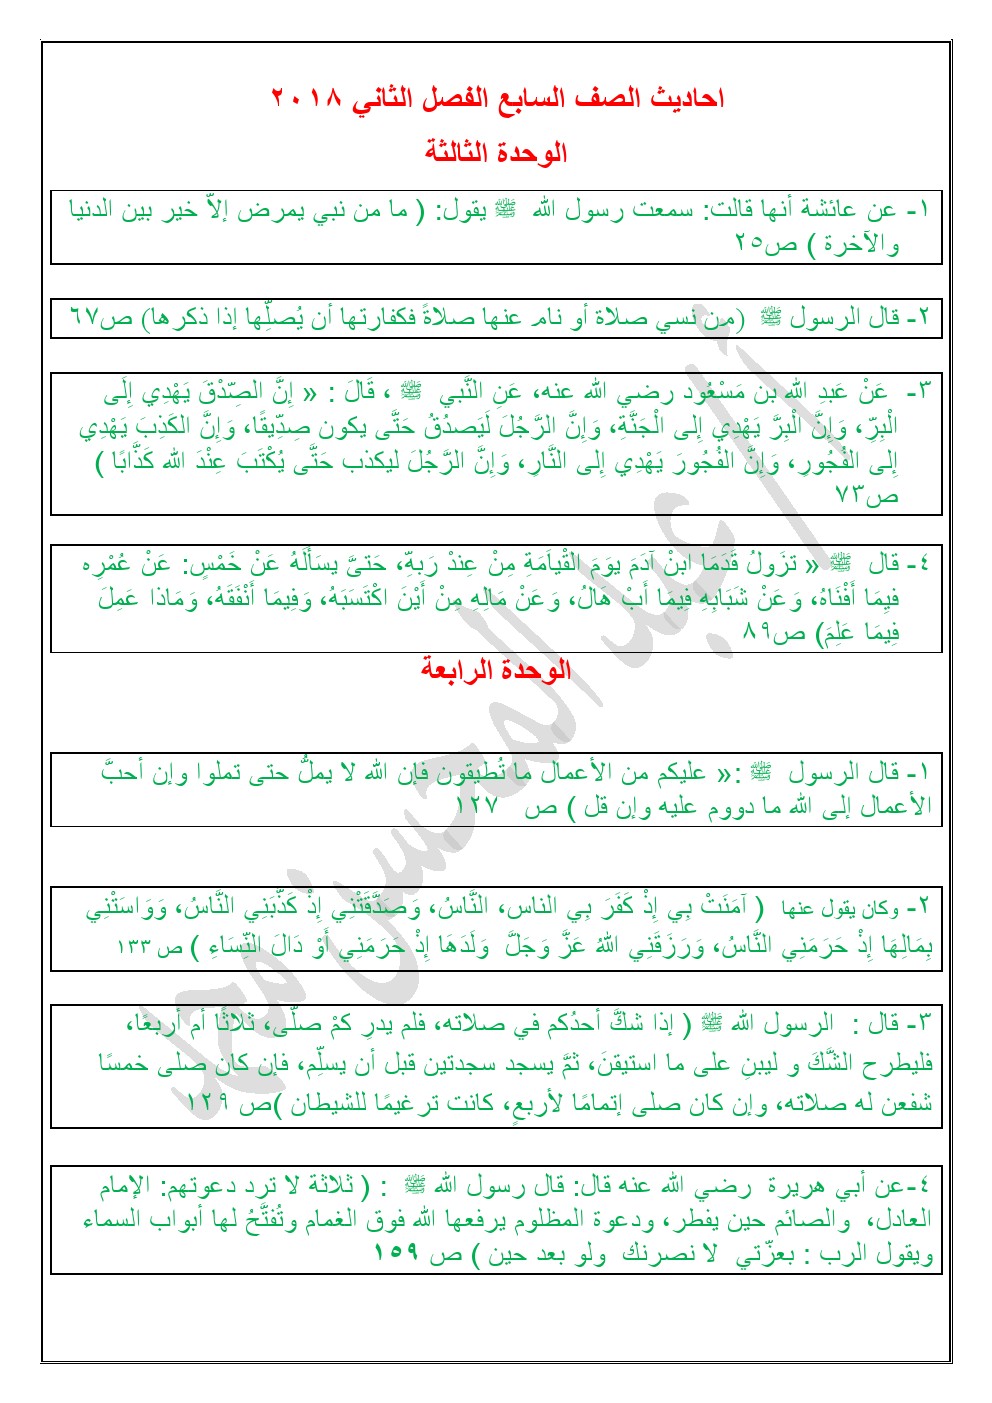 احاديث الصف السابع الفصل الثاني ٢٠١٨
الوحدة الثالثة
١- عن عائشة أنها قالت: سمعت رسول الله ﷺ يقول: ( ما من نبي يمرض إلاّ خير بين الدنيا
والآخرة ) ص٢٥
٢- قال الرسول ﷺ (من نسي صلاة أو نام عنها صلاةً فكفارتها أن يُصلِّها إذا ذكرها) ص٦٧
٣- عَنْ عَبدِ الله بن مَسْعُود رضي الله عنه، عَنِ النَّبي ﷺ ، قَالَ : « إِنَّ الصِّدْقَ يَهْدِي إِلَى
الْبِرِّ، وَإِنَّ الْبِرَّ يَهْدِي إِلى الْجَنَّةِ، وَإِنَّ الرَّجُلَ لَيَصدُقُ حَتَّى يكون صِدِّيقًا، وَإِنَّ الكَذِبَ يَهْدِي
إِلى الفُجُورِ، وَإِنَّ الفُجُورَ يَهْدِي إِلى النَّارِ، وَإِنَّ الرَّجُلَ ليكذب حَتَّى يُكْتَبَ عِنْدَ الله كَذَّابًا )
ص٧٣
٤- قال ﷺ « تزَولُ قَدَمَا ابنْ آدَمَ يوَمَ القْيِاَمَةِ مِنْ عِندْ رَبهِّ، حَتىَّ يسأَلَهُ عَنْ خَمْسٍ: عَنْ عُمْرِه
فيِمَا أَفْنَاهُ، وَعَنْ شَبَابِهِ فِيمَا أَبْ هَالُ، وَعَنْ مَالِهِ مِنْ أَيْنَ اكْتَسَبَهُ، وَفِيمَا أَنْفَقَهُ، وَمَاذا عَمِلَ
فِيمَا عَلِمَ) ص٨٩
الوحدة الرابعة
١- قال الرسول ﷺ :« عليكم من الأعمال ما تُطيقون فإن الله لا يملُّ حتى تملوا وإن أحبَّ
الأعمال إلى الله ما دووم عليه وإن قل ) ص ١٢٧
٢- وكان يقول عنها ( آمَنَتْ بِي إِذْ كَفَرَ بِي الناس، النَّاسُ، وَصَدَّقَتْنِي إِذْ كَذَّبَنِي النَّاسُ، وَوَاسَتْنِي
بِمَالِهَا إِذْ حَرَمَنِي النَّاسُ، وَرَزَقَنِي اللهُ عَزَّ وَجَلَّ وَلَدَهَا إِذْ حَرَمَنِي أَوْ دَالَ النِّسَاءِ ) ص ١٣٣
٣- قال : الرسول الله ﷺ ( إذا شكَّ أحدُكم في صلاته، فلم يدرِ كمْ صلَّى، ثلاثًا أم أربعًا،
فليطرح الشَّكَ و ليبنِ على ما استيقنَ، ثمَّ يسجد سجدتين قبل أن يسلِّم، فإن كان صلى خمسًا
شفعن له صلاته، وإن كان صلى إتمامًا لأربعٍ، كانت ترغيمًا للشيطان )ص ١٢٩
٤-عن أبي هريرة رضي الله عنه قال: قال رسول الله ﷺ : ( ثلاثة لا ترد دعوتهم: الإمام
العادل، والصائم حين يفطر، ودعوة المظلوم يرفعها الله فوق الغمام وتُفتَّحُ لها أبواب السماء
ويقول الرب : بعزّتي لا نصرنك ولو بعد حين ) ص ١٥٩
أ/عبد المحسن محمد